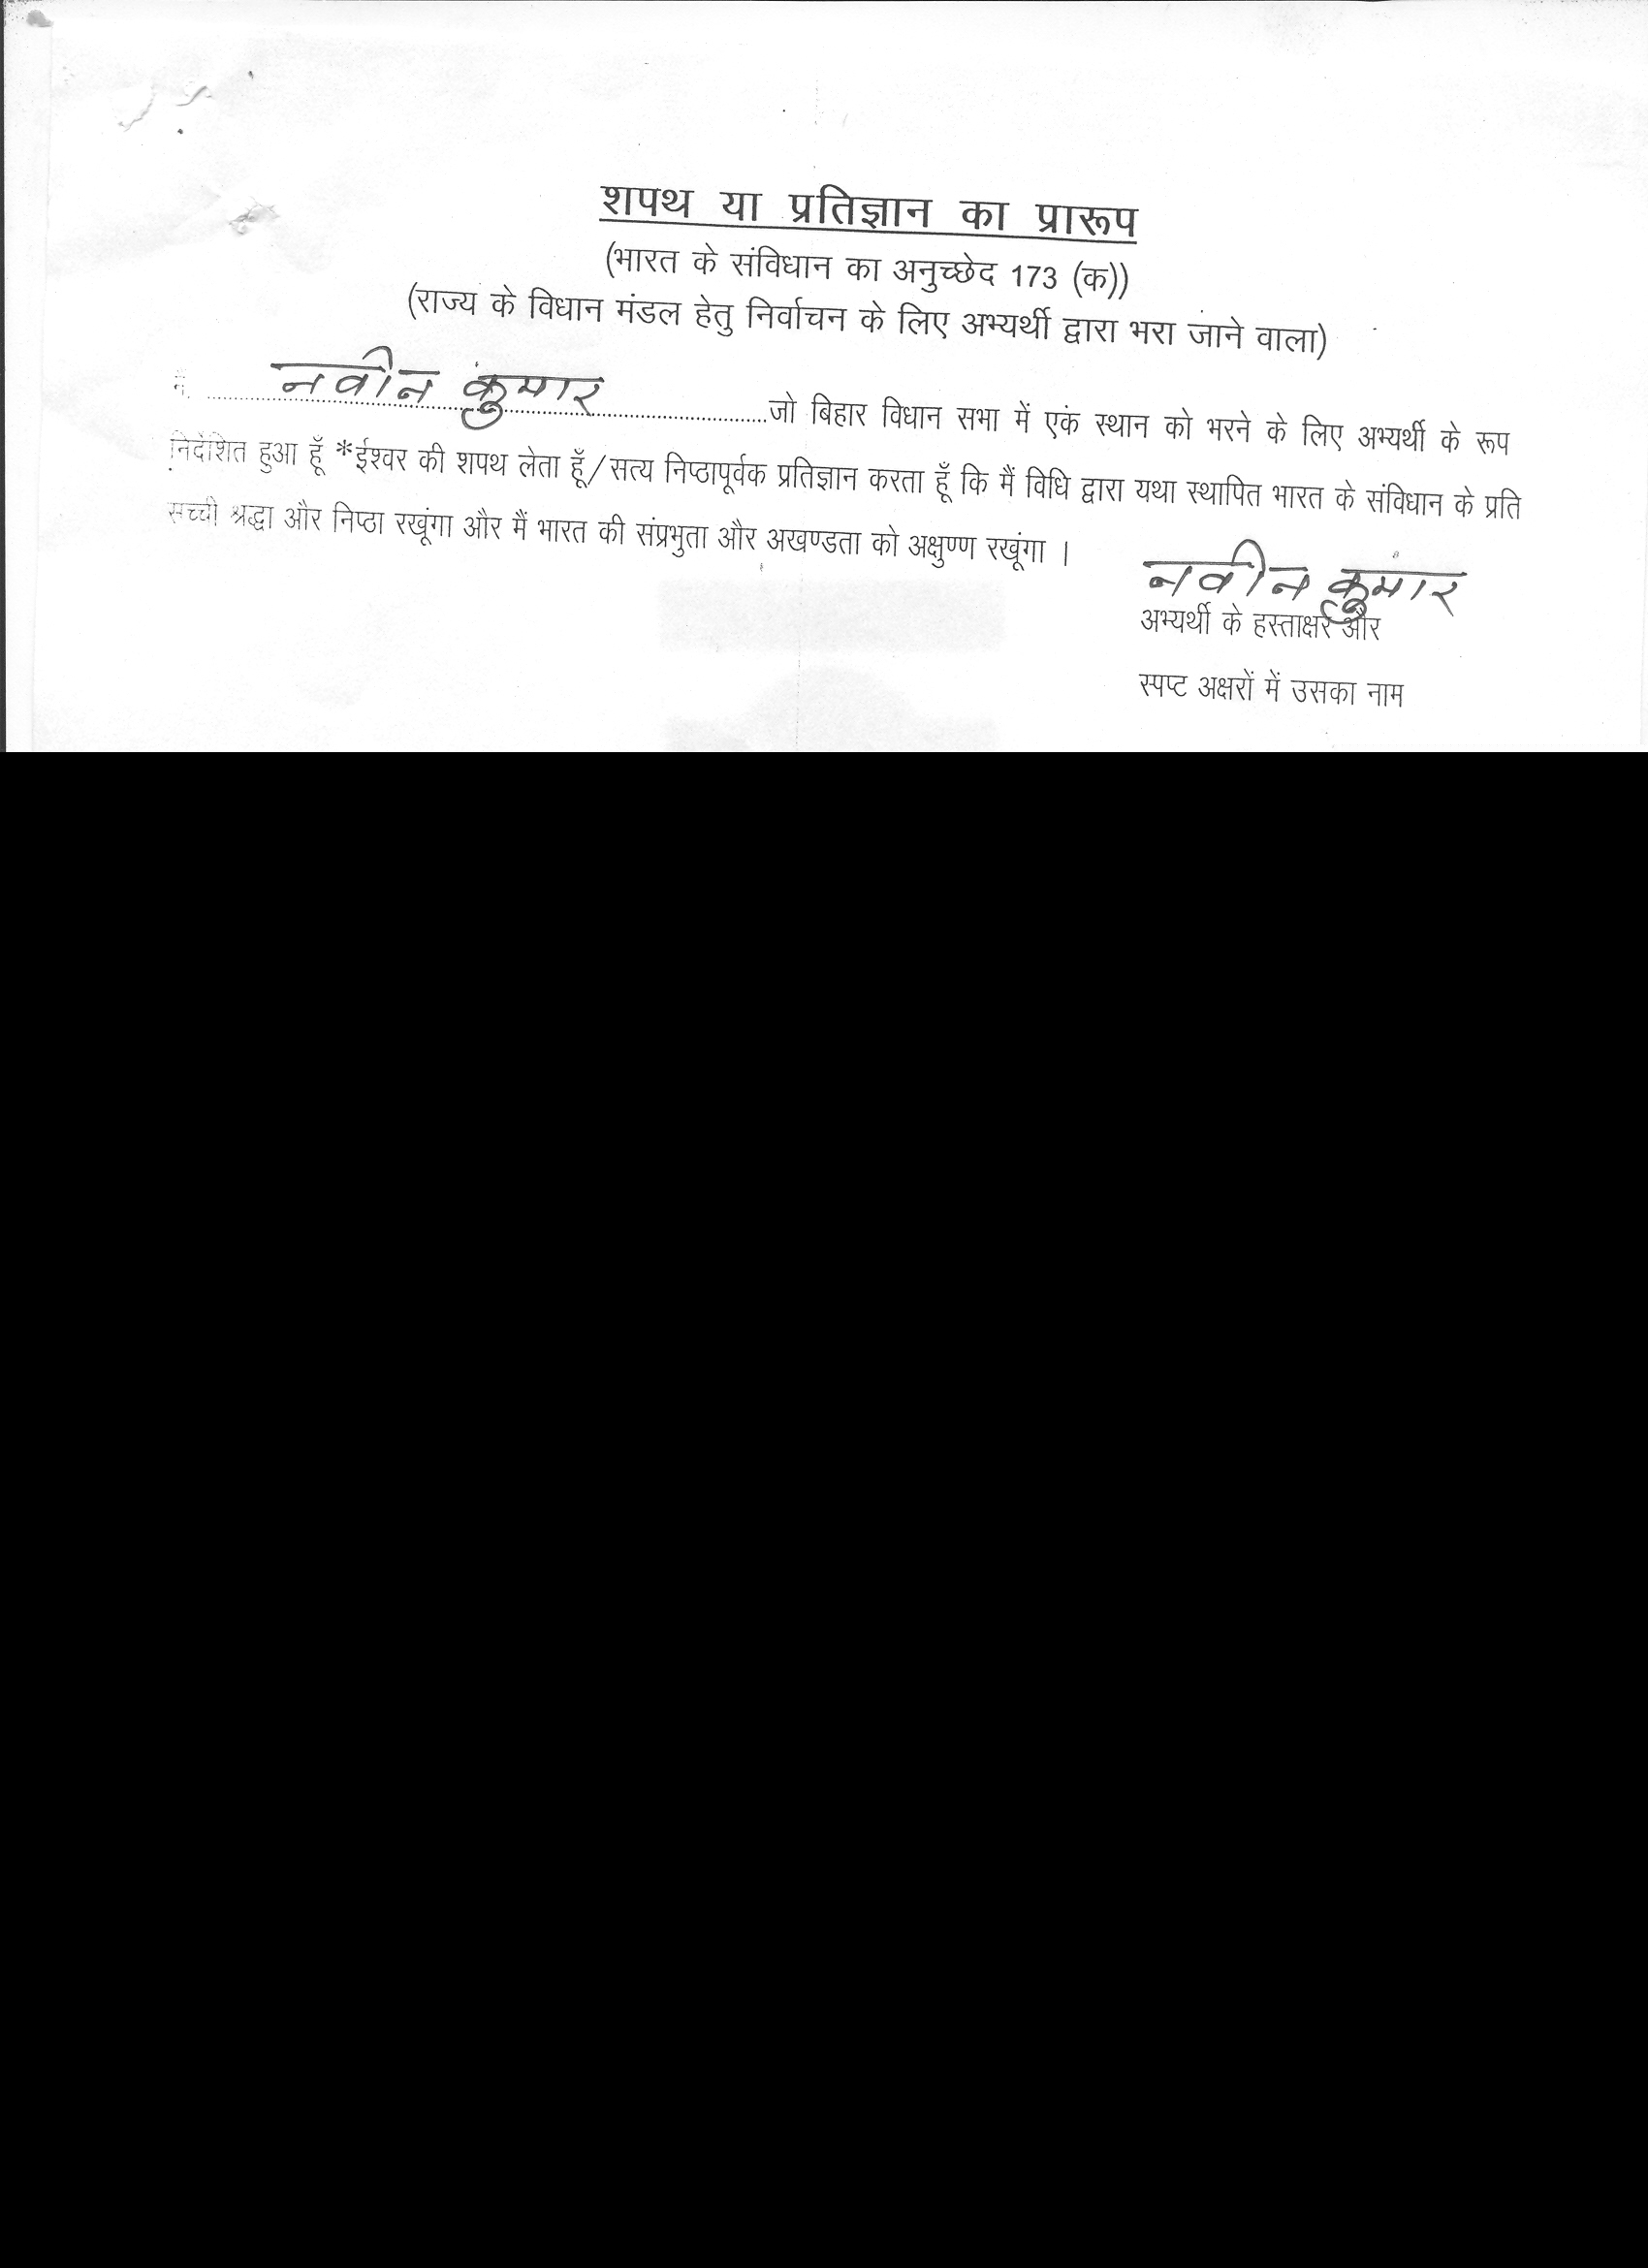 शपथ या प्रतिज्ञान का प्रारूप
(भारत के संविधान का अनुच्छेद 173 (क))
(राज्य के विधान मंडल हेतु निर्वाचन के लिए अभ्यर्थी द्वारा भरा जाने वाला)
मैं, नवीन कुमार जो बिहार विधान सभा में एक स्थान को भरने के लिए अभ्यर्थी के रूप
निर्देशित हुआ हूँ *ईश्वर की शपथ लेता हूँ/सत्य निष्ठापूर्वक प्रतिज्ञान करता हूँ कि मैं विधि द्वारा यथा स्थापित भारत के संविधान के प्रति
सच्ची श्रद्धा और निष्ठा रखूंगा और मैं भारत की संप्रभुता और अखण्डता को अक्षुण्ण रखूंगा ।
नवीन कुमार
अभ्यर्थी के हस्ताक्षर और
स्पष्ट अक्षरों में उसका नाम